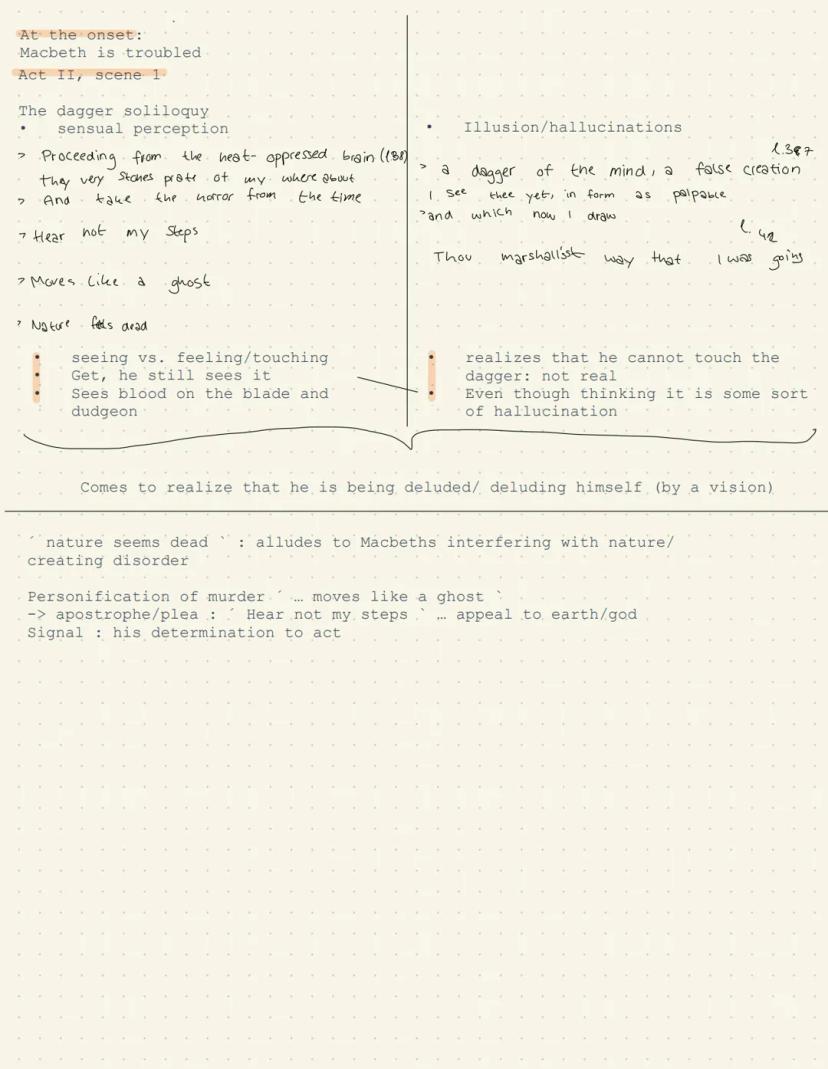 At the onset:
Macbeth is troubled
Act II, scene 1
The dagger soliloquy
• sensual perception
> Proceeding from the heat-oppressed brain (l38)
They very stones prate of my where about
> And take the horror from the time
> Hear not my steps
> Moves like a ghost
> Nature dead
• seeing vs. feeling/touching
• Get, he still sees it
• Sees blood on the blade and
dudgeon
• Illusion/hallucinations
> a dagger of the mind, a false creation
I see thee yet, in form as palpable
> and which now I draw
l. 42
Thou marshall'sst way that I was going
• realizes that he cannot touch the
dagger: not real
• Even though thinking it is some sort
of hallucination
Comes to realize that he is being deluded/ deluding himself (by a vision)
´ nature seems dead ` : alludes to Macbeths interfering with nature/
creating disorder
Personification of murder ´ … moves like a ghost `
-> apostrophe/plea : ´ Hear not my steps ` … appeal to earth/god
Signal : his determination to act